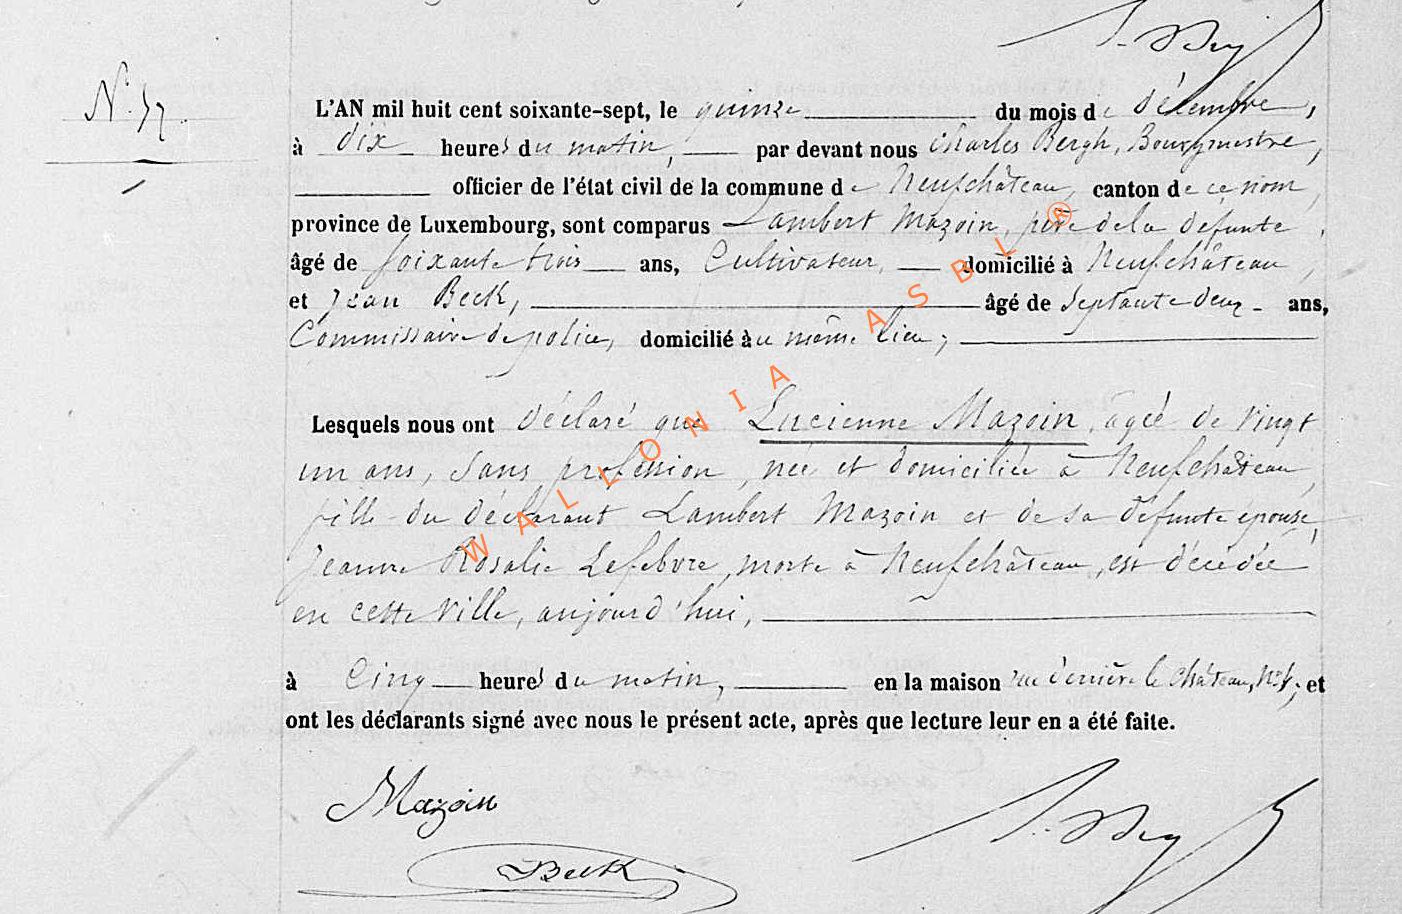 N° 57.
L'AN mil huit cent soixante-sept, le quinze du mois de décembre,
à dix heures du matin, par devant nous Charles Bergh, Bourgmestre,
officier de l'état civil de la commune de Neufchâteau, canton de ce nom,
province de Luxembourg, sont comparus Lambert Mazoin, père de la défunte,
âgé de soixante trois ans, Cultivateur, domicilié à Neufchâteau,
et Jean Beck, âgé de septante deux ans,
Commissaire de police, domicilié au même lieu;
Lesquels nous ont déclaré que Lucienne Mazoin, agée de vingt
un ans, sans profession, née et domiciliée à Neufchâteau,
fille du déclarant Lambert Mazoin et de sa défunte épouse,
Jeanne Rosalie Lefebvre, morte à Neufchâteau, est décédée
en cette ville, aujourd'hui,
à Cinq heures du matin, en la maison rue derrière le Château, N°; et
ont les déclarants signé avec nous le présent acte, après que lecture leur en a été faite.
Mazoin
Beck
WALLONIA ASBL ®